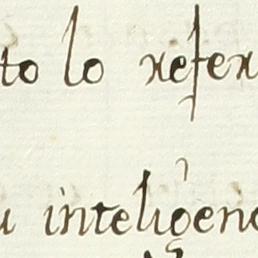 to lo refer
u inteligenc